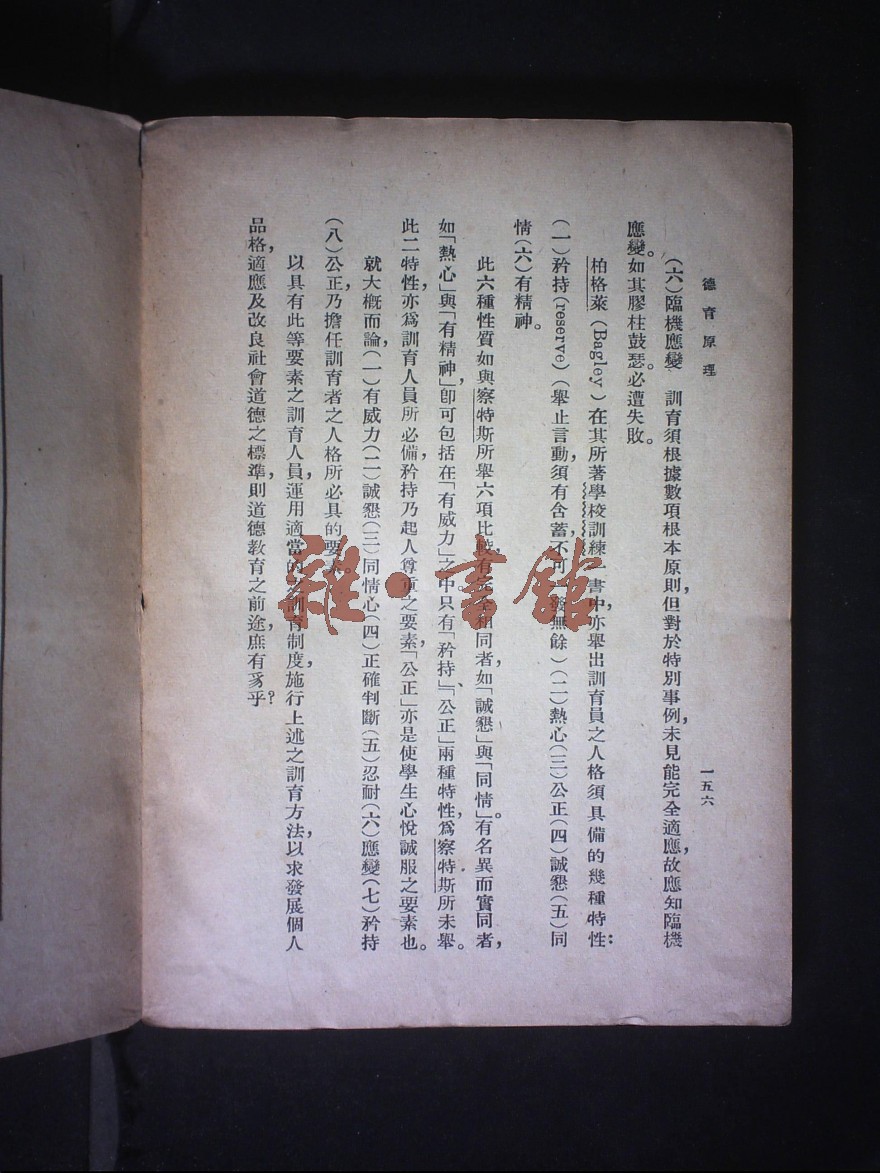 德育原理
一五六
(六)臨機應變　訓育須根據數項根本原則,但對於特別事例,未見能完全適應,故應知臨機
應變。如其膠柱鼓瑟。必遭失敗。
柏格萊(Bagley)在其所著學校訓練一書中,亦舉出訓育員之人格須具備的幾種特性:
(一)矜持(reserve)(舉止言動,須有含蓄,不可一發無餘)(二)熱心(三)公正(四)誠懇(五)同
情(六)有精神。
此六種性質如與察特斯所舉六項比較,有完全相同者,如「誠懇」與「同情」。有名異而實同者,
如「熱心」與「有精神」,卽可包括在「有威力」之中。只有「矜持」、「公正」兩種特性,爲察特斯所未舉。
此二特性,亦爲訓育人員所必備,矜持乃起人尊重之要素,「公正」亦是使學生心悅誠服之要素也。
就大槪而論,(一)有威力(二)誠懇(三)同情心(四)正確判斷(五)忍耐(六)應變(七)矜持
(八)公正,乃擔任訓育者之人格所必具的要素。
以具有此等要素之訓育人員,運用適當的之訓育制度,施行上述之訓育方法,以求發展個人
品格,適應及改良社會道德之標準,則道德教育之前途,庶有豸乎?
雜·書館